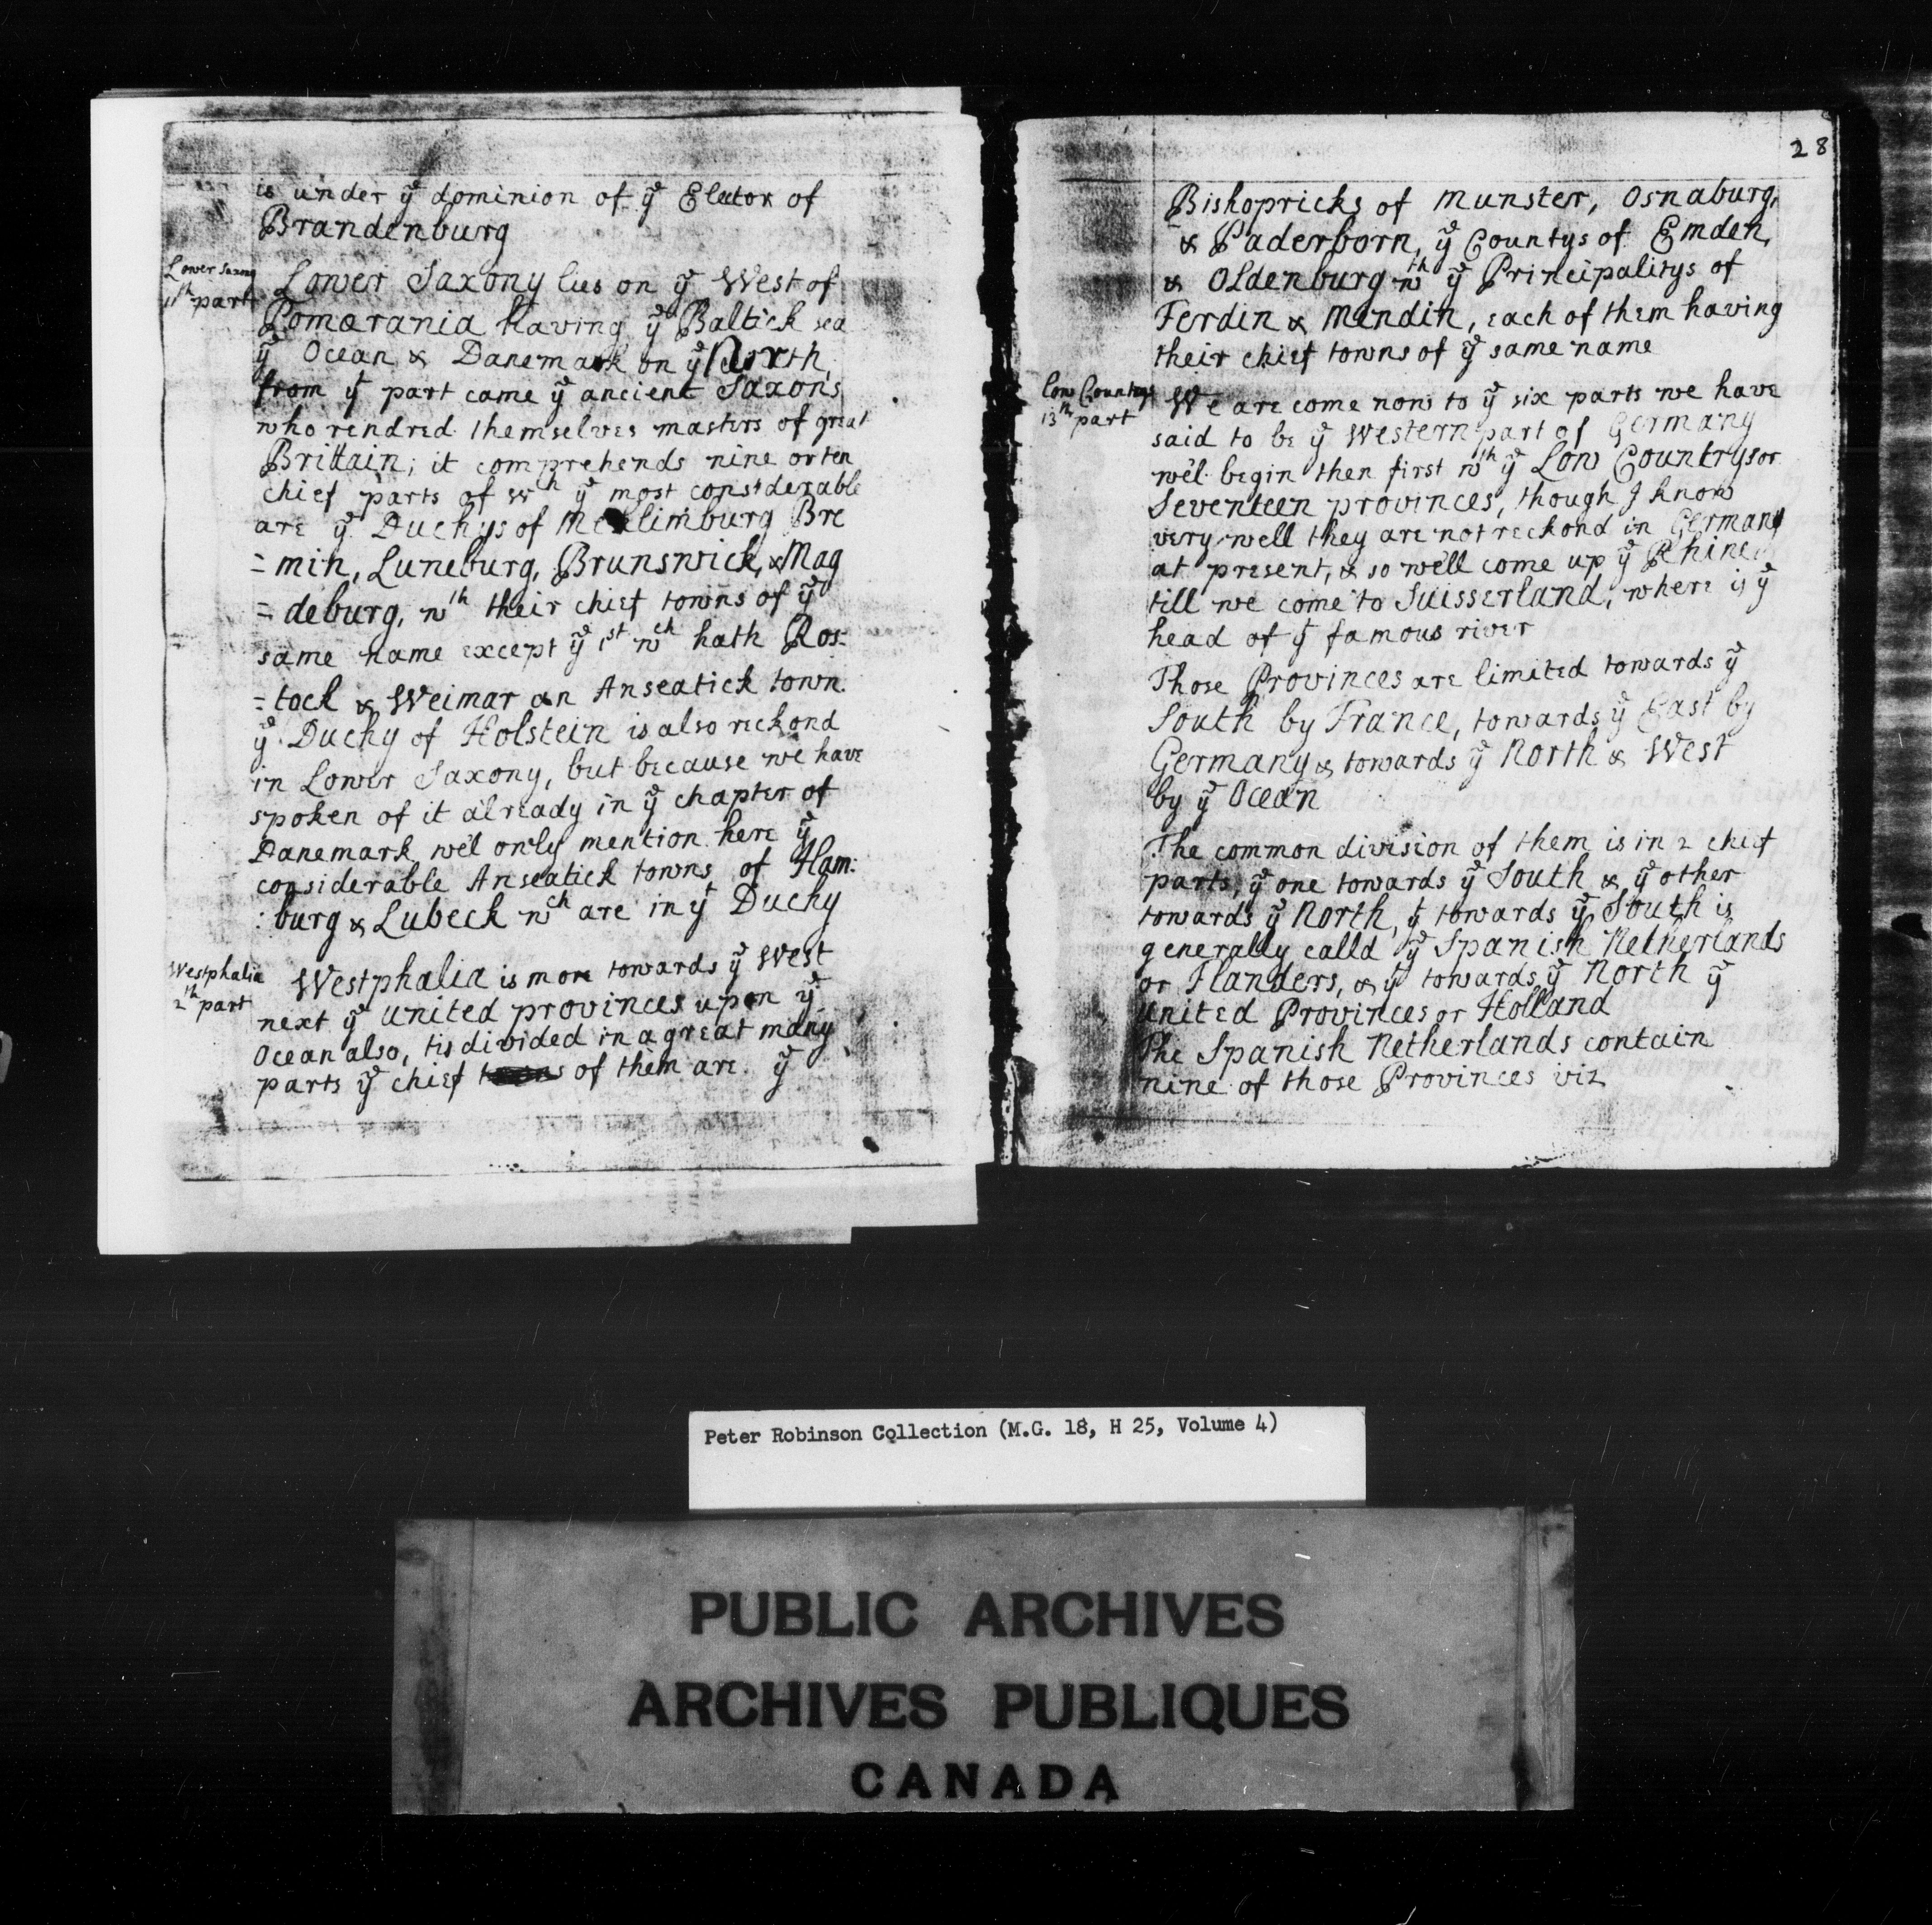 is under yͤ dominion of yͤ Elector of
Brandenburg
Lower Saxony
11th part
Lower Saxony lies on yͤ West of
Pomærania having yͤ Baltick sea
yͤ Ocean & Danemark on yͤ North,
from yͭ part came yͤ ancient Saxons
who rendred themselves masters of great
Brittain; it comprehends nine or ten
chief parts of wh yͤ most considerable
are yͤ Duchys of Meklimburg Bre
= min, Luneburg, Brunswick, & Mag
= deburg, wth their chief towns of yͤ
same name except yͤ 1st wch hath Ros=
= tock & Weimar an Anseatick town.
yͤ Duchy of Holstein is also reckond
in Lower Saxony, but because we have
spoken of it already in yͤ chapter of
Danemark, we'l only mention here yͤ
considerable Anseatick towns of Ham:
: burg & Lubeck wch are in yͭ Duchy
Westphalia
2th part
Westphalia is more towards yͤ West
next yͤ united provinces upon yͤ
Ocean also, tis divided in a great many
parts yͤ chief of them are yͤ
28
Bishopricks of Munster, Osnaburg,
& Paderborn, yͤ Countys of Emden,
& Oldenburg wth yͤ Principalitys of
Ferdin & Mindin, each of them having
their chief towns of yͤ same name
Low Countrys
13th part
We are come now to yͤ six parts we have
said to be yͤ Western part of Germany
we'l begin then first wth yͤ Low Countrys or
Seventeen provinces, though I know
very well they are not reckond in Germany
at present, & so we'll come up yͤ Rhine
till we come to Suisserland, where is yͤ
head of yͭ famous river
Those Provinces are limited towards yͤ
South by France, towards yͤ East by
Germany & towards yͤ North & West
by yͤ Ocean
The common division of them is in 2 chief
parts, yͤ one towards yͤ South & yͤ other
towards yͤ North, yͭ towards yͤ South is
generally calld yͤ Spanish Netherlands
or Flanders, & yͭ towards yͤ North yͤ
United Provinces or Holland
The Spanish Netherlands contain
nine of those Provinces viz
Peter Robinson Collection (M.G. 18, H 25, Volume 4)
PUBLIC ARCHIVES
ARCHIVES PUBLIQUES
CANADA